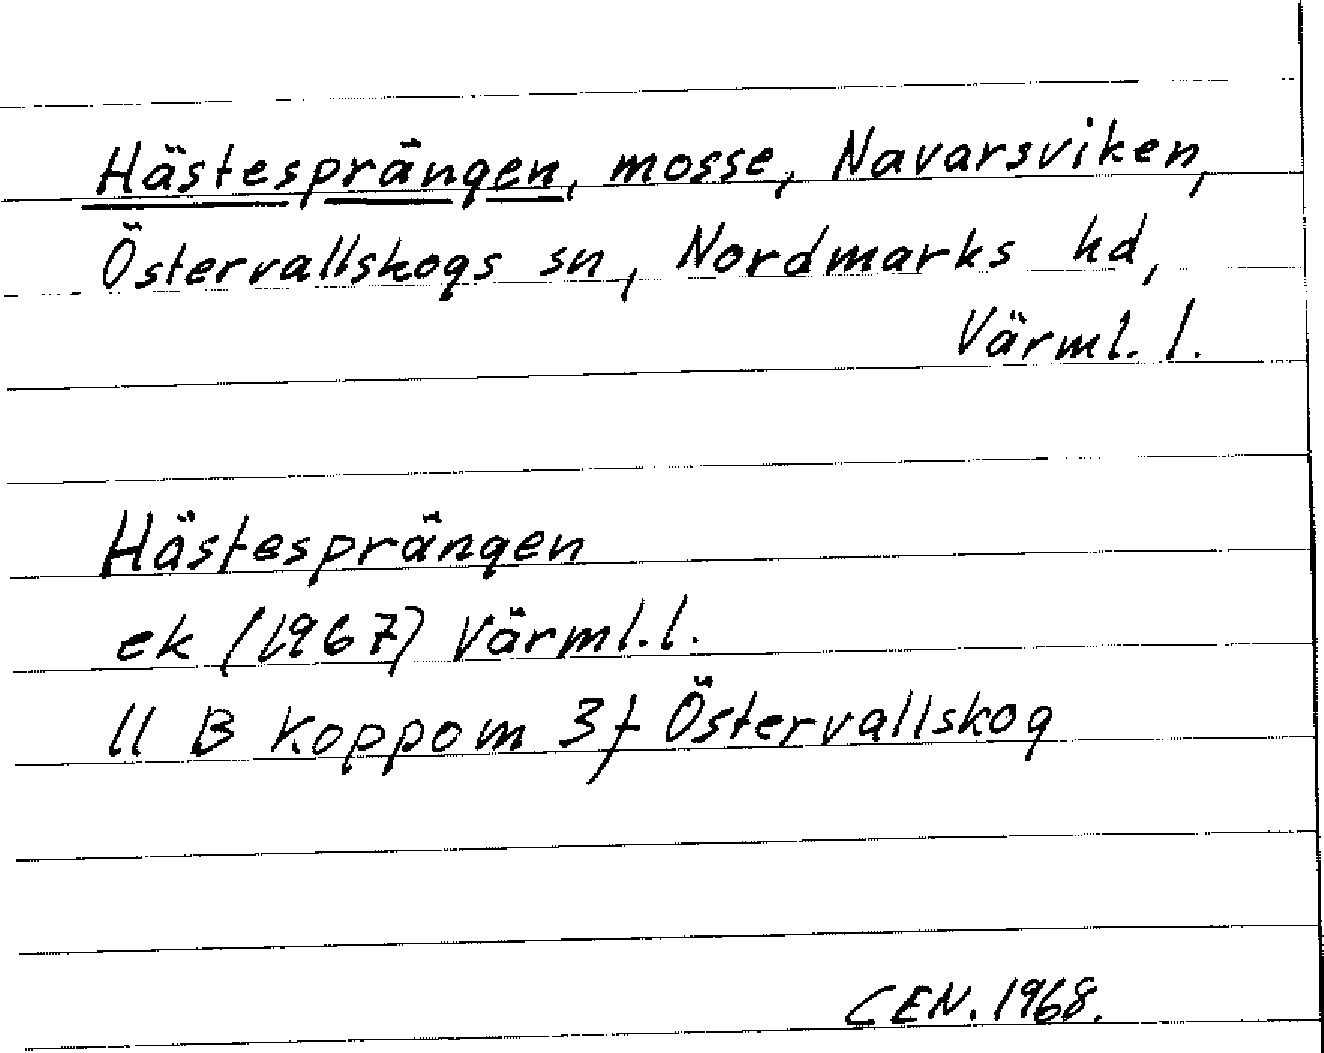 Hästesprängen, mosse, Navarsviken,
Östervallskogs sn, Nordmarks hd,
Värml. l.
Hästesprängen
ek (1967) Värml. l.
11 B Koppom 3f Östervallskog
CEN. 1968.